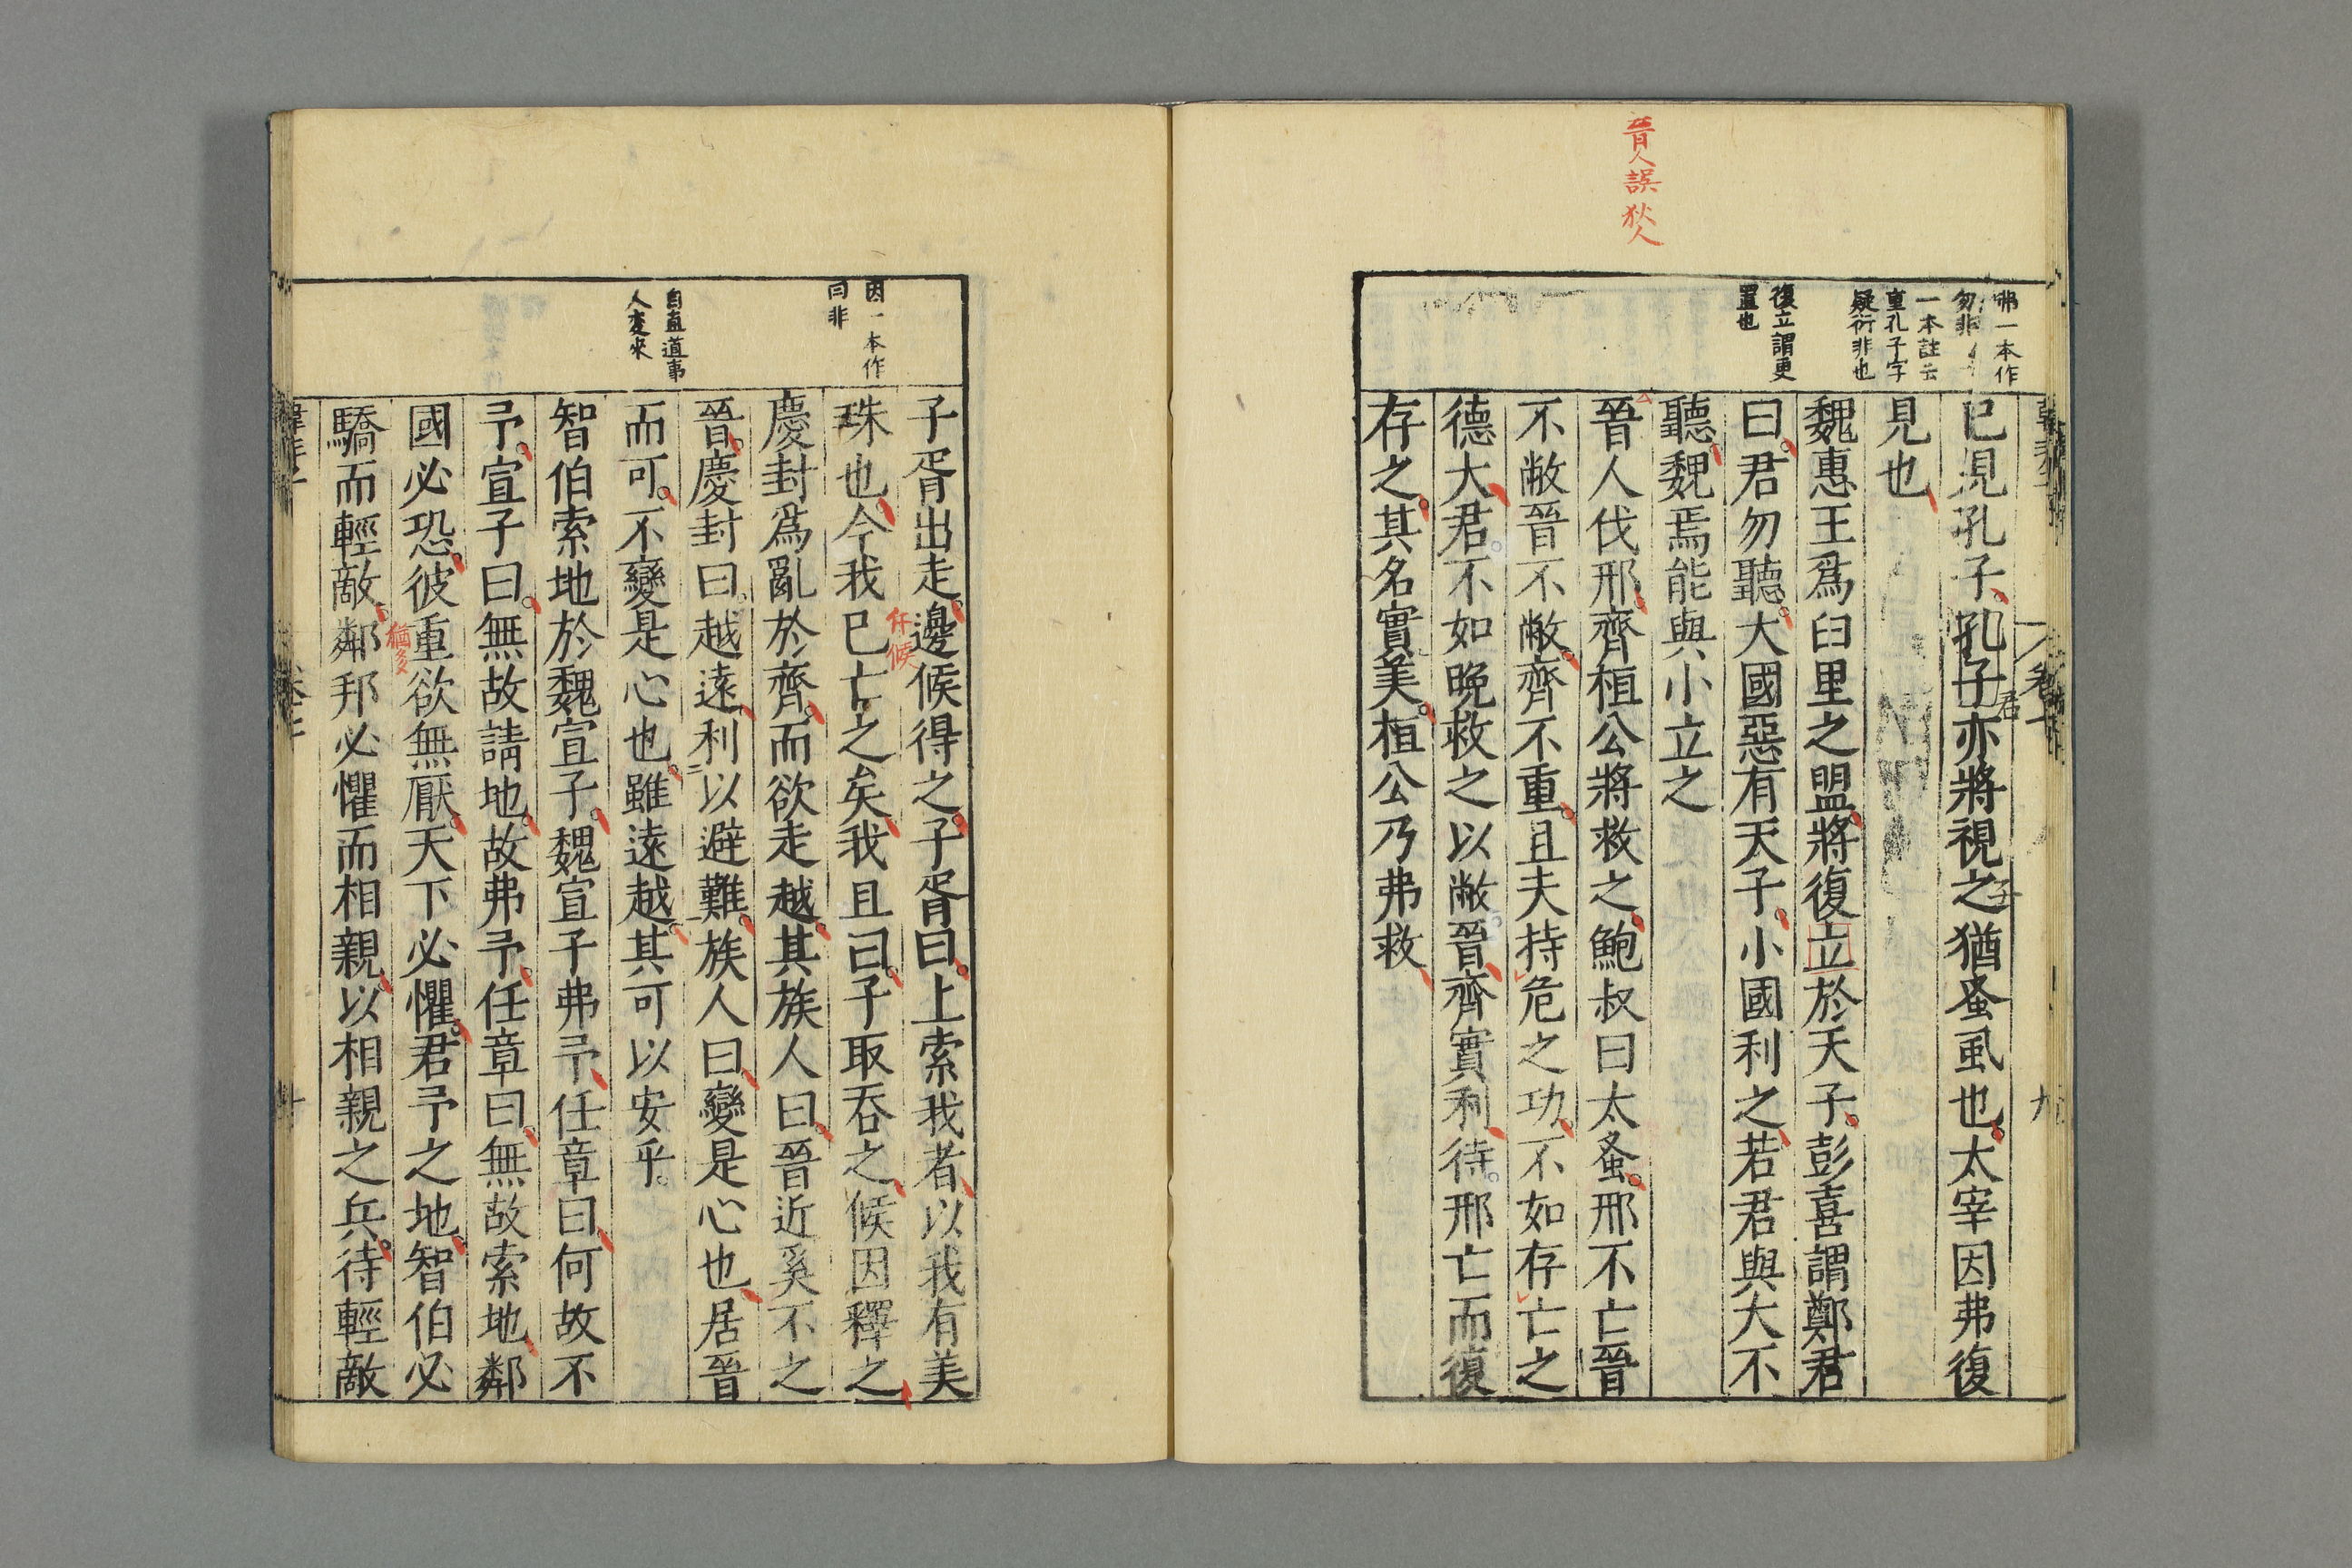 晉人誤狄人
弗一本作
勿非
一本註云
重孔子字
疑衍非也
復立謂更
置也
已見孔子孔子亦將視之猶蚤虱也太宰因弗復
君
子
見也
魏惠王爲臼里之盟將復立於天子彭喜謂鄭君
曰君勿聽大國惡有天子小國利之若君與大不
聽魏焉能與小立之
晉人伐邢齊桓公將救之鮑叔曰太蚤邢不亡晉
不敝晉不敝齊不重且夫持危之功不如存亡之
德大君不如晚救之以敝晉齊實利待邢亡而復
存之其名實美桓公乃弗救
因一本作
曰非
自直道事
人変來
子胥出走邊候得之子胥曰上索我者以我有美
斥候
珠也今我已亡之矣我且曰子取吞之候因釋之
慶封爲亂於齊而欲走越其族人曰晉近奚不之
晉慶封曰越遠利以避難族人曰變是心也居晉
而可不變是心也雖遠越其可以安乎
智伯索地於魏宣子魏宣子弗予任章曰何故不
予宣子曰無故請地故弗予任章曰無故索地鄰
國必恐彼重欲無厭天下必懼君予之地智伯必
猶多
驕而輕敵鄰邦必懼而相親以相親之兵待輕敵